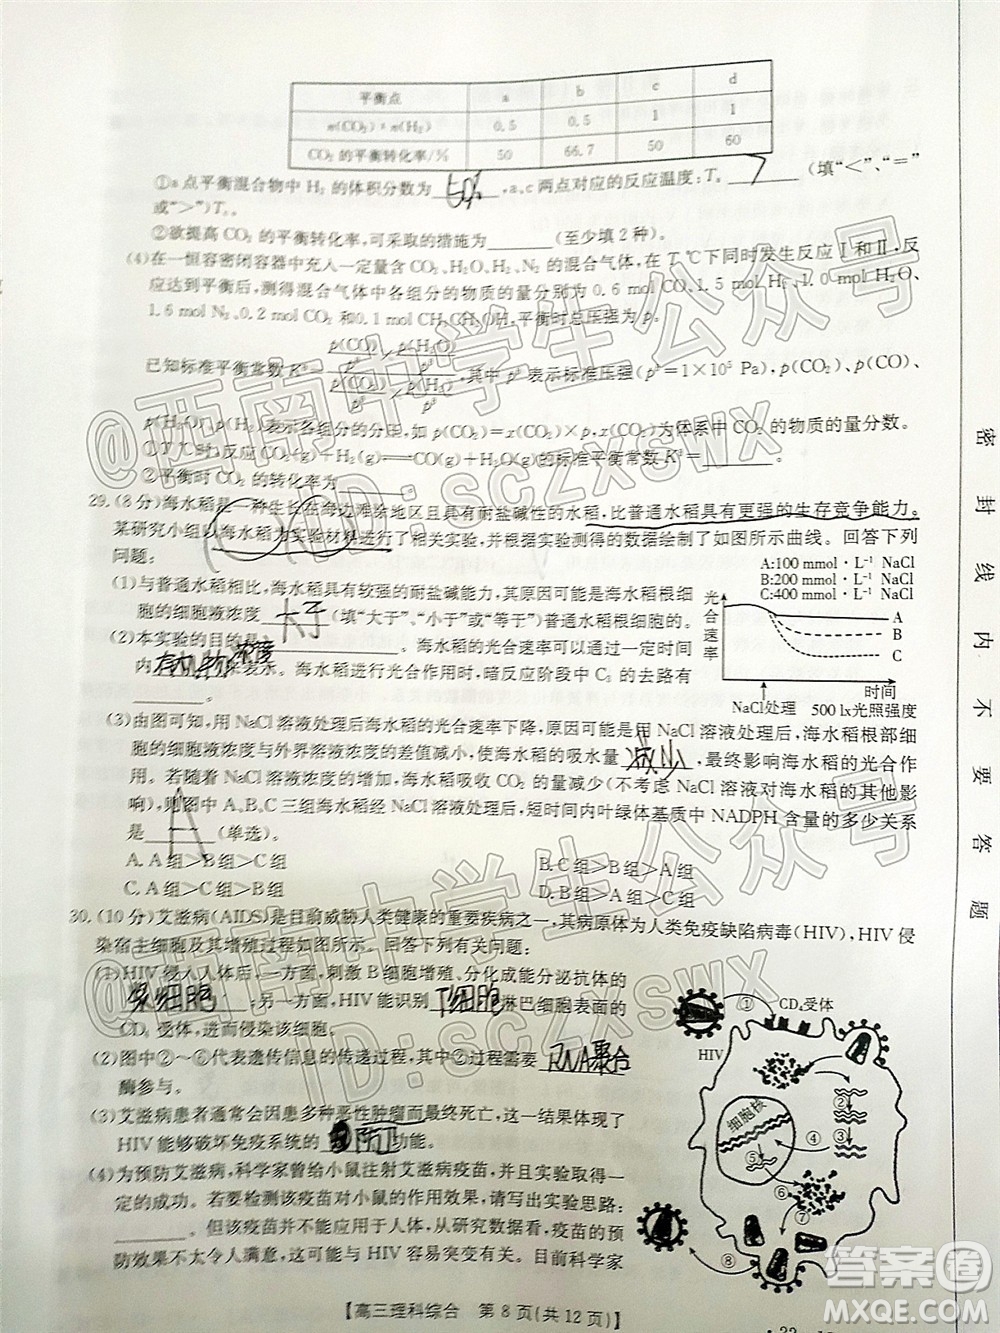 平衡点 a b c d
n(CO₂):n(H₂) 0.5 0.5 1 1
CO₂的平衡转化率/% 50 66.7 50 60
①a点平衡混合物中H₂的体积分数为 50% ,a、c两点对应的反应温度:Tₐ (填“<”“=”
或“>”)T꜀。
②欲提高CO₂的平衡转化率,可采取的措施为________(至少填2种)。
(4)在一恒容密闭容器中充入一定量的CO₂、H₂O、H₂、N₂的混合气体,在T ℃下同时发生反应Ⅰ和Ⅱ,反
应达到平衡后,测得混合气体中各组分的物质的量分别为0.6 mol CO₂、1.5 mol H₂、1.0 mol H₂O、
1.6 mol N₂、0.2 mol CO₂
已知标准平衡常数 ,其中 表示标准压强 =1×10⁵ Pa),p(CO₂)、p(CO)、
p(H₂O) p(H₂)表示各组分的分压,如p(CO₂)=x(CO₂)·p,x(CO₂)为体系中CO₂的物质的量分数。
①反应CO₂(g)+H₂(g) CO(g)+H₂O(g)的标准平衡常数 =________。
②平衡时CO₂的转化率为
29.(8分)海水稻是一种生长在海边滩涂地区且具有耐盐碱性的水稻,比普通水稻具有更强的生存竞争能力。
某研究小组以海水稻为实验材料进行了相关实验,并根据实验测得的数据绘制了如图所示曲线。回答下列
问题:
(1)与普通水稻相比,海水稻具有较强的耐盐碱能力,其原因可能是海水稻根细
胞的细胞液浓度 大于 (填“大于”、“小于”或“等于”)普通水稻根细胞的。
(2)本实验的目的是________。海水稻的光合速率可以用一定时间
内 有机物 来表示。海水稻进行光合作用时,暗反应阶段中C₃的去路有
________。
A:100 mmol·L⁻¹ NaCl
B:200 mmol·L⁻¹ NaCl
C:400 mmol·L⁻¹ NaCl
光合速率
A
B
C
时间
NaCl处理 500 lx光照强度
(3)由图可知,用NaCl溶液处理后海水稻的光合速率下降,原因可能是用NaCl溶液处理后,海水稻根部细
胞的细胞液浓度与外界溶液浓度的差值减小,使海水稻的吸水量 减少 ,最终影响海水稻的光合作
用。随着NaCl溶液浓度的增加,海水稻吸收CO₂的量减少(不考虑NaCl溶液浓度对海水稻的其他影
响),则图中A、B、C三组海水稻经NaCl溶液处理后,短时间内叶绿体基质中NADPH含量的多少关系
是 A (单选)。
A.C组>A组>B组 B.A组>B组>C组
C.A组>C组>B组 D.C组>B组>A组
30.(10分)艾滋病(AIDS)是目前威胁人类健康的重要疾病之一,其病原体为人类免疫缺陷病毒(HIV),HIV侵
染宿主细胞及其增殖过程如图所示。回答下列有关问题:
(1)HIV侵入人体后,一方面,刺激B细胞增殖、分化成能分泌抗体的
浆细胞 ;另一方面,HIV能识别 T细胞 淋巴细胞表面的
CD₄受体,进而侵染该细胞。
(2)图中②~⑥代表遗传信息的传递过程,其中②过程需要 RNA聚合
酶参与。
(3)艾滋病患者通常会因患多种恶性肿瘤而最终死亡,这一结果体现了
HIV能够破坏免疫系统的 防卫 功能。
(4)为预防艾滋病,科学家曾给小鼠注射艾滋病疫苗,并且实验取得了一
定的成功。若要检测该疫苗对小鼠的作用效果,请写出实验思路:
________。但该疫苗并不能应用于人体,从研究数据看,疫苗的预
防效果不太令人满意,这可能与HIV容易突变有关。目前科学家
① CD₄受体 HIV ② ③ 细胞核 ④ ⑤ ⑥ ⑦ ⑧
【高三理科综合 第8页(共12页)】
密封线内不要答题
@西南中学生公众号
ID:sczxswx
@西南中学生公众号
ID:sczxswx
答案圈
MXQE.COM